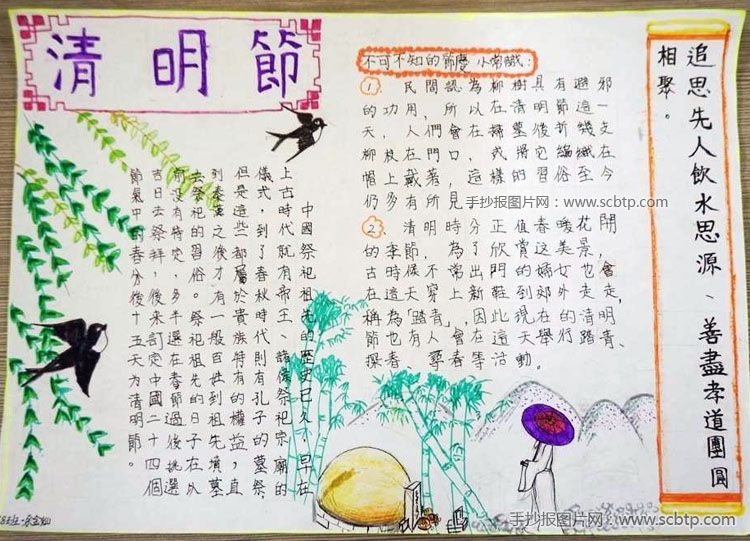 清明節
不可不知的節慶小常識:
① 民間認為柳樹具有避邪
的功用,所以在清明節這一
天,人們會在掃墓後折幾支
柳枝在門口,或將它編織在
帽上戴著,這樣的習俗至今
仍多有所見
手抄报图片网:www.scbtp.com
② 清明時分正值春暖花開
的季節,為了欣賞這美景,
古時候不常出門的婦女也會
在這天穿上新鞋到郊外走走,
稱為"踏青",因此現在的清明
節也有人會在這天舉行踏青、
探春、尋春等活動。
中國祭祀祖先的歷史已久,早在
上古時代就有帝王、諸侯祭祀宗廟的
儀式,到了春秋時代則有孔子的墓祭
但是這些都屬於貴族特有的權益,直
到秦漢之後才有一般百姓到祖先墳墓
去祭祀的習俗。祭祀祖先的日子在以
前沒有特定,多半選在春節過後挑選
吉日去祭拜,後來訂定中國二十四個
節氣中的春分後十五天為清明節。
追思先人飲水思源、善盡孝道團圓
相聚。
手抄报图片网:www.scbtp.com